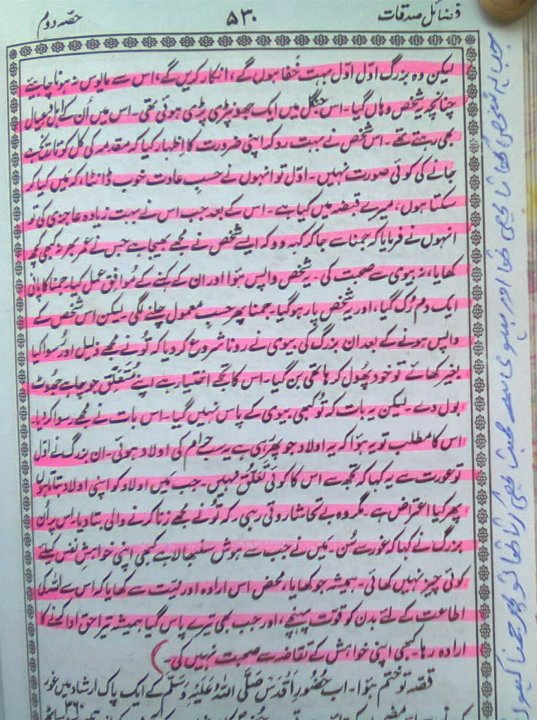 فضائل صدقات ۵۳۰ حصہ دوم
لیکن وہ بزرگ اوّل اوّل بہت خفا ہوں گے، انکار کریں گے، اس سے مایوس نہ ہونا چاہیئے
چنانچہ یہ شخص وہاں گیا۔ اس جنگل میں ایک جھونپڑی پڑی ہوئی تھی۔ اس میں اُن کے اہل وعیال
بھی رہتے تھے۔ اس شخص نے بہت رو کر اپنی ضرورت کا اظہار کیا کہ مقدمہ کی کل کو تاریخ ہے
جانے کی کوئی صورت نہیں۔ اوّل تو انہوں نے حسبِ عادت خوب ڈانٹا، کہ میں کیا کر
سکتا ہوں، میرے قبضہ میں کیا ہے۔ اس کے بعد جب اس نے بہت زیادہ عاجزی کی تو
انہوں نے فرمایا کہ جمنا سے جا کر کہہ دو کہ ایسے شخص نے مجھے بھیجا ہے جس نے عمر بھر نہ کبھی کچھ
کھایا، نہ بیوی سے صحبت کی۔ یہ شخص واپس ہوا اور ان کے کہنے کے موافق عمل کیا۔ جمنا کا پانی
ایک دم رُک گیا، اور یہ شخص پار ہو گیا۔ جمنا پھر حسبِ معمول چلنے لگی۔ لیکن اس شخص کے
واپس ہونے کے بعد ان بزرگ کی بیوی نے رونا شروع کر دیا کہ تُو نے مجھے ذلیل اور رُسوا کیا
بغیر کھائے تو خود پھول کر ہاتھی بن گیا۔ اس کا تجھے اختیار ہے اپنے متعلق جو چاہے جھوٹ
بول دے۔ لیکن یہ بات کہ تُو کبھی بیوی کے پاس نہیں گیا۔ اس بات نے مجھے رسوا کر دیا۔
اس کا مطلب تو یہ ہوا کہ یہ اولاد جو پھر رہی ہے یہ سب حرام کی اولاد ہوئی۔ ان بزرگ نے اوّل
تو عورت سے یہ کہا کہ تجھ سے اس کا کوئی تعلق نہیں۔ جب میں اولاد کو اپنی اولاد بتاتا ہوں
پھر کیا اعتراض ہے۔ مگر وہ بے تحاشا روتی رہی کہ تُو نے مجھے زنا کرنے والی بنا دیا۔ اس پر اُن
بزرگ نے کہا کہ غور سے سُن۔ میں نے جب سے ہوش سنبھالا ہے کبھی اپنی خواہش نفس کیلئے
کوئی چیز نہیں کھائی۔ ہمیشہ جو کھایا، محض اس ارادہ اور نیت سے کھایا کہ اس سے اللہ کی
اطاعت کے لئے بدن کو قوت پہنچے، اور جب بھی تیرے پاس گیا ہمیشہ تیرا حق ادا کرنے کا
ارادہ رہا۔ کبھی اپنی خواہش کے تقاضہ سے صحبت نہیں کی۔)
قصہ تو ختم ہوا۔ اب حضورِ اقدس صَلَّی اللہُ عَلَیْہِ وَسَلَّم کے ایک پاک ارشاد میں غور